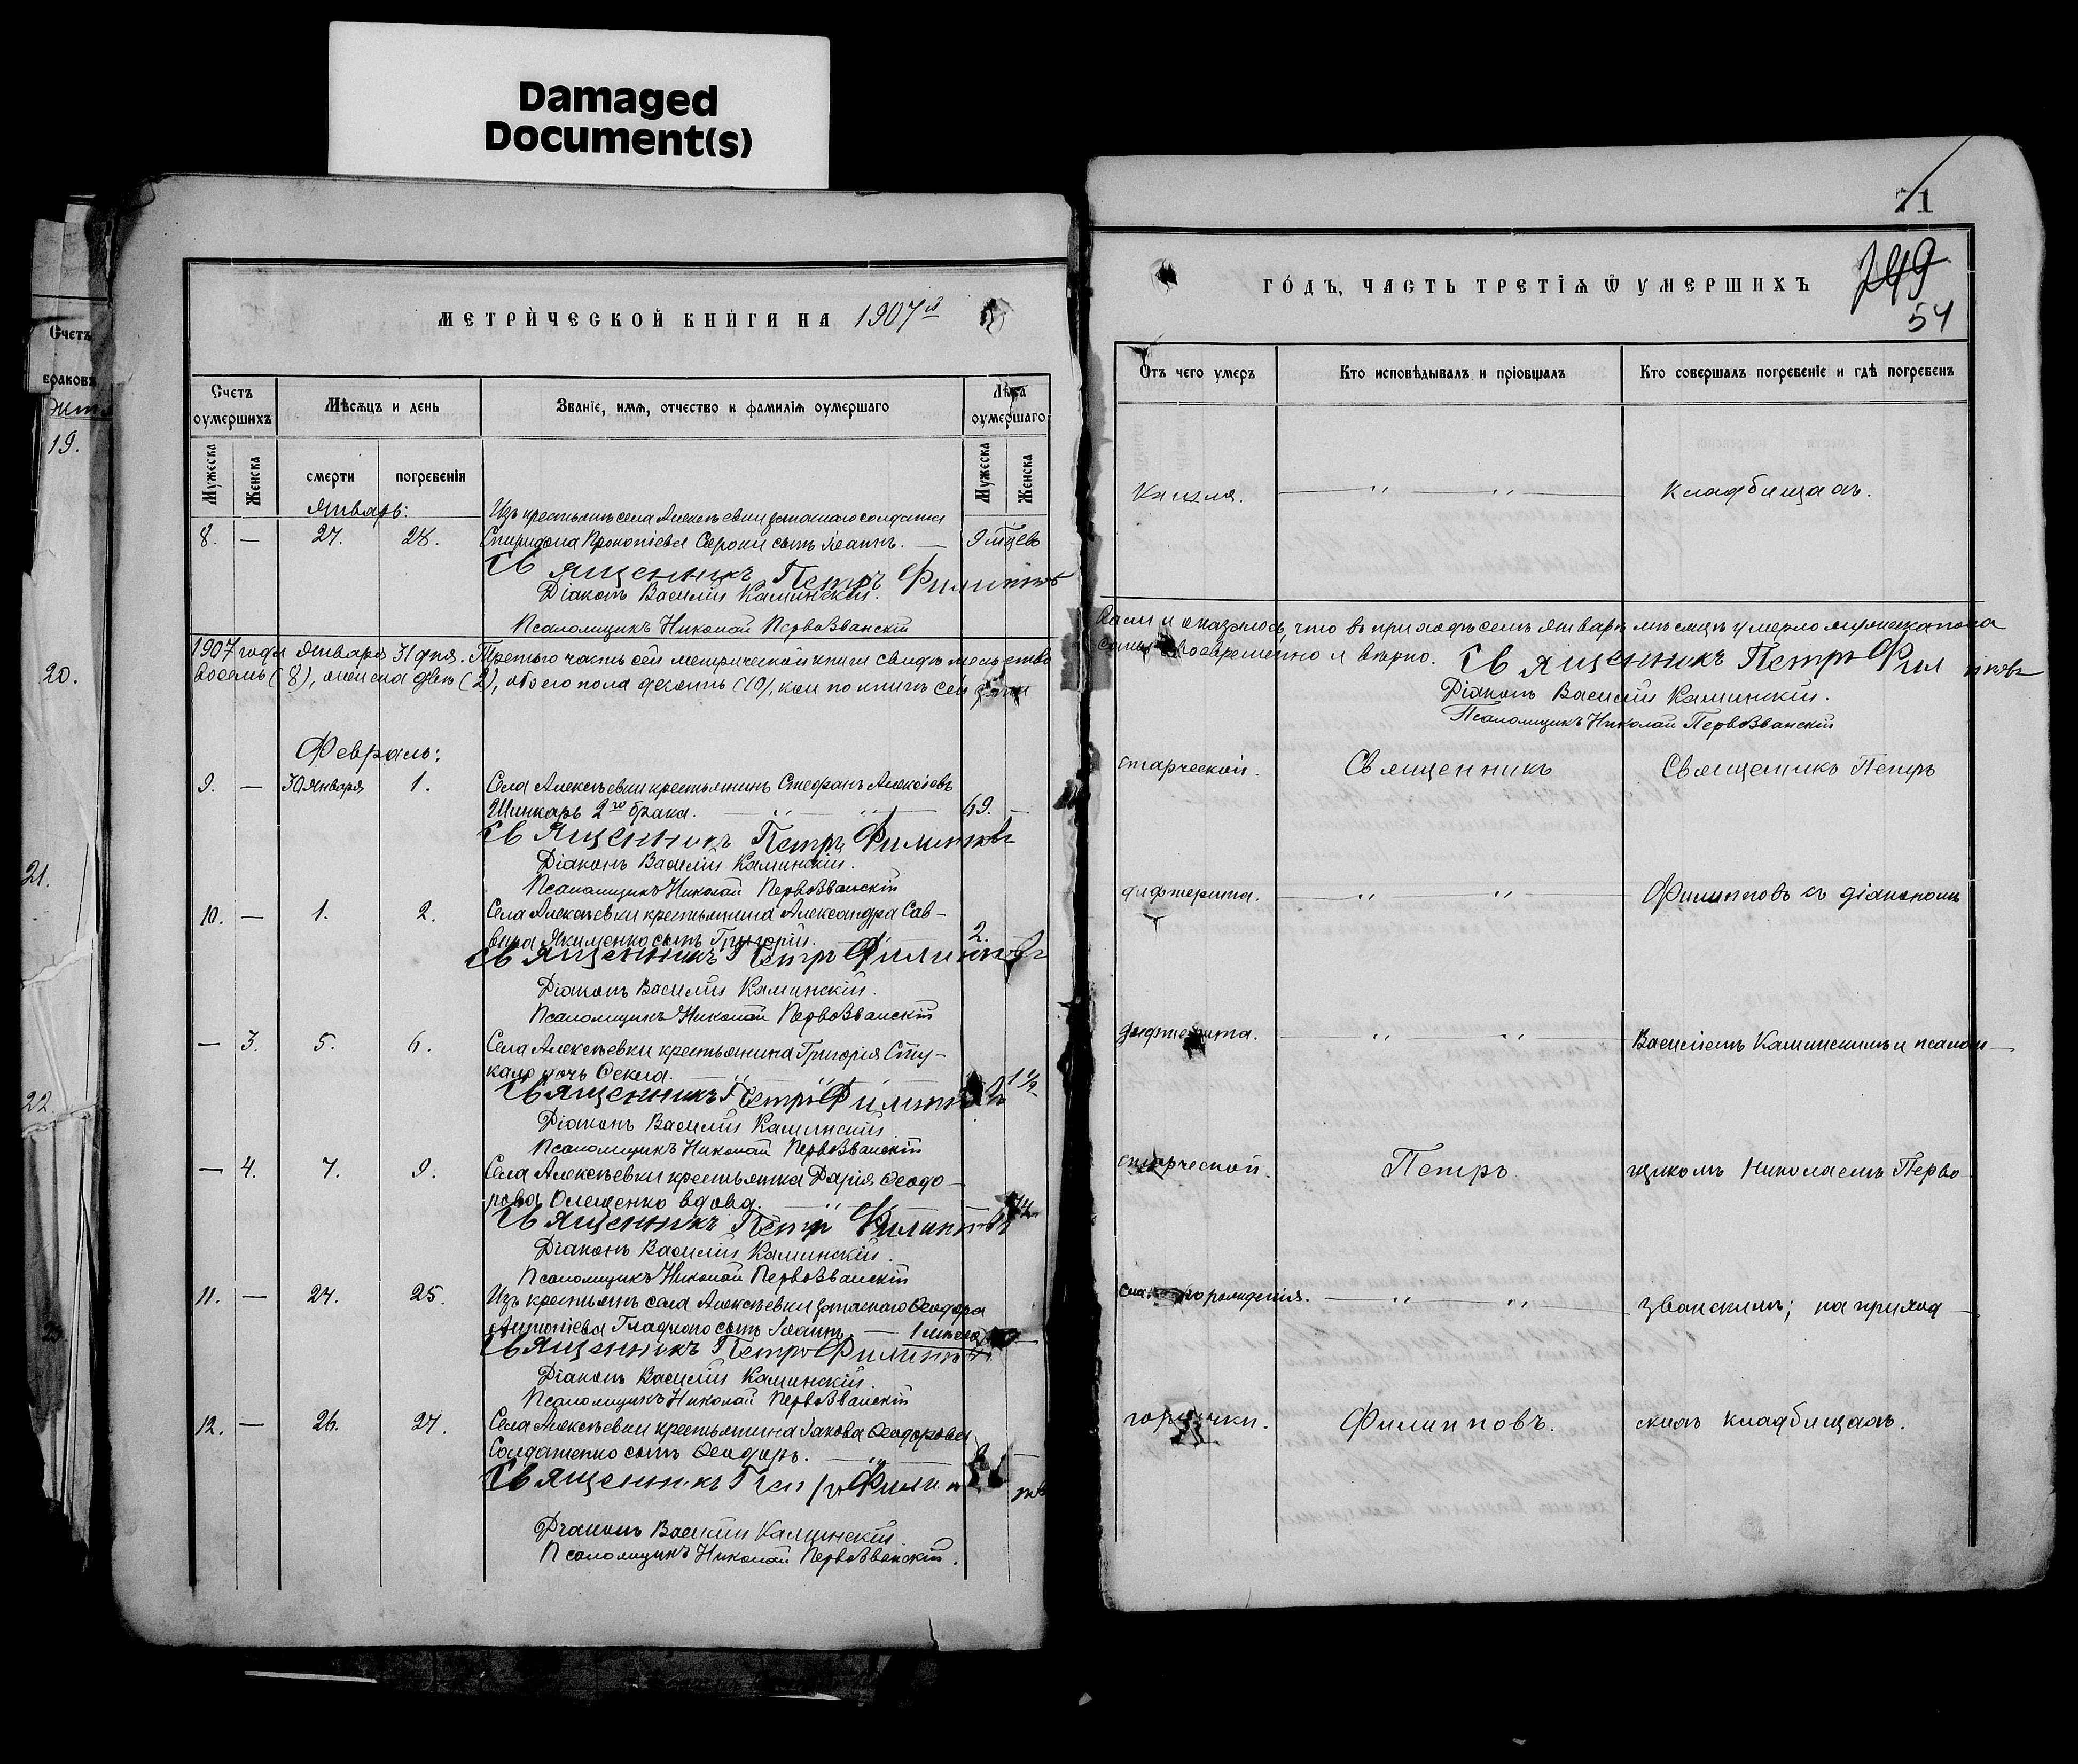 Damaged
Document(s)
Счетъ
браковъ
19.
20.
21.
22.
МЕТРИЧЕСКОЙ КНИГИ НА 1907й
Счетъ оумершихъ
Мужеска
Женска
Мѣсѧцъ и день
смерти
погребенія
Званіе, имѧ, отчество и фамиліѧ оумершаго
Лѣта оумершаго
Мужеска
Женска
Январь:
8. — 27. 28. Изъ крестьянъ села Алексѣевки запаснаго солдата
Спиридона Прокопіева Сероки сынъ Іоаннъ. — 9 мѣсев
Священникъ Петръ Филипповъ
Діаконъ Василій Каминскій.
Псаломщикъ Николай Первозванскій
1907 года Января 31 дня. Третью часть сей метрической книги свидѣтельство
восемь (8), женска двѣ (2), обоего пола десять (10), кои по книгѣ сей
Февраль:
9. — 30 января 1. Села Алексѣевки крестьянинъ Стефанъ Алексѣевъ
Шинкарь 2го брака. — " — " — 69. —
Священникъ Петръ Филипповъ
Діаконъ Василій Каминскій.
Псаломщикъ Николай Первозванскій
10. — 1. 2. Села Алексѣевки крестьянина Александра Сав-
вина Якименко сынъ Григорій. 2.
Священникъ Петръ Филипповъ
Діаконъ Василій Каминскій.
Псаломщикъ Николай Первозванскій
— 3. 5. 6. Села Алексѣевки крестьянина Григорія Сту-
кало дочь Ѳекла. 1 1/2
Священникъ Петръ Филипповъ
Діаконъ Василій Каминскій
Псаломщикъ Николай Первозванскій
— 4. 7. 9. Села Алексѣевки крестьянка Дарія Ѳеодо-
рова Олещенко вдова.
Священникъ Петръ Филипповъ
Діаконъ Василій Каминскій.
Псаломщикъ Николай Первозванскій
11. — 24. 25. Изъ крестьянъ села Алексѣевки запаснаго Ѳеодора
Гладкого сынъ Іоаннъ. —
Священникъ Петръ Филипповъ
Діаконъ Василій Каминскій.
Псаломщикъ Николай Первозванскій
12. — 26. 27. Села Алексѣевки крестьянина Іакова Ѳеодорова
Солдатенко сынъ Ѳеодоръ.
Священникъ Петръ Филипповъ
Діаконъ Василій Каминскій
Псаломщикъ Николай Первозванскій.
71
54
ГОДЪ, ЧАСТЬ ТРЕТІѦ Ѿ УМЕРШИХЪ
Отъ чего умеръ
Кто исповѣдывалъ и пріобщалъ
Кто совершалъ погребеніе и гдѣ погребенъ
Кашля. — " — " — кладбищахъ.
вали и оказалось, что въ приходѣ семъ январѣ мѣсяцѣ умерло мужска пола
своевременно и вѣрно. Священникъ Петръ Филипповъ
Діаконъ Василій Каминскій.
Псаломщикъ Николай Первозванскій
старческой. Священникъ Священникъ Петръ
дифтерита. — " — " — Филипповъ съ діакономъ
дифтерита. — " — " — Василіемъ Каминскимъ и псалом-
старческой. Петръ. щикомъ Николаемъ Перво-
рожденія. — " — " — званскимъ; на приход-
горячки. Филипповъ. скихъ кладбищахъ.